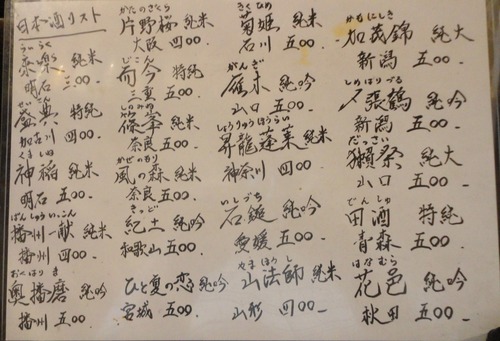 日本酒リスト
らいらく
來樂 純米
明石 三〇〇.
せいてん
盛典 特純
加古川 四〇〇
くましね
神稲 純米
明石 五〇〇.
ばんしゅういっこん
播州一献 純米
播州 四〇〇.
おくはりま
奥播磨 純吟
播州 五〇〇.
かたのさくら
片野桜 純米
大阪 四〇〇.
而今 特純
三重 五〇〇.
しのみね
篠峯 純米
奈良 五〇〇.
かぜのもり
風の森 純米
奈良 五〇〇.
きっど
紀土 純吟
和歌山 五〇〇
ひと夏の恋 純吟
宮城 五〇〇.
きくひめ
菊姫 純米
石川 五〇〇.
がんぎ
雁木 純吟
山口 五〇〇
しょうりゅうほうらい
昇龍蓬莱 純米
神奈川 四〇〇
いしづち
石鎚 純吟
愛媛 五〇〇
やまほうし
山法師 純米
山形 四〇〇
かもにしき
加茂錦 純大
新潟 五〇〇.
しめはりづる
〆張鶴 純吟
新潟 五〇〇.
だっさい
獺祭 純大
山口 五〇〇
でんしゅ
田酒 特純
青森 五〇〇
はなむら
花邑 純吟
秋田 五〇〇